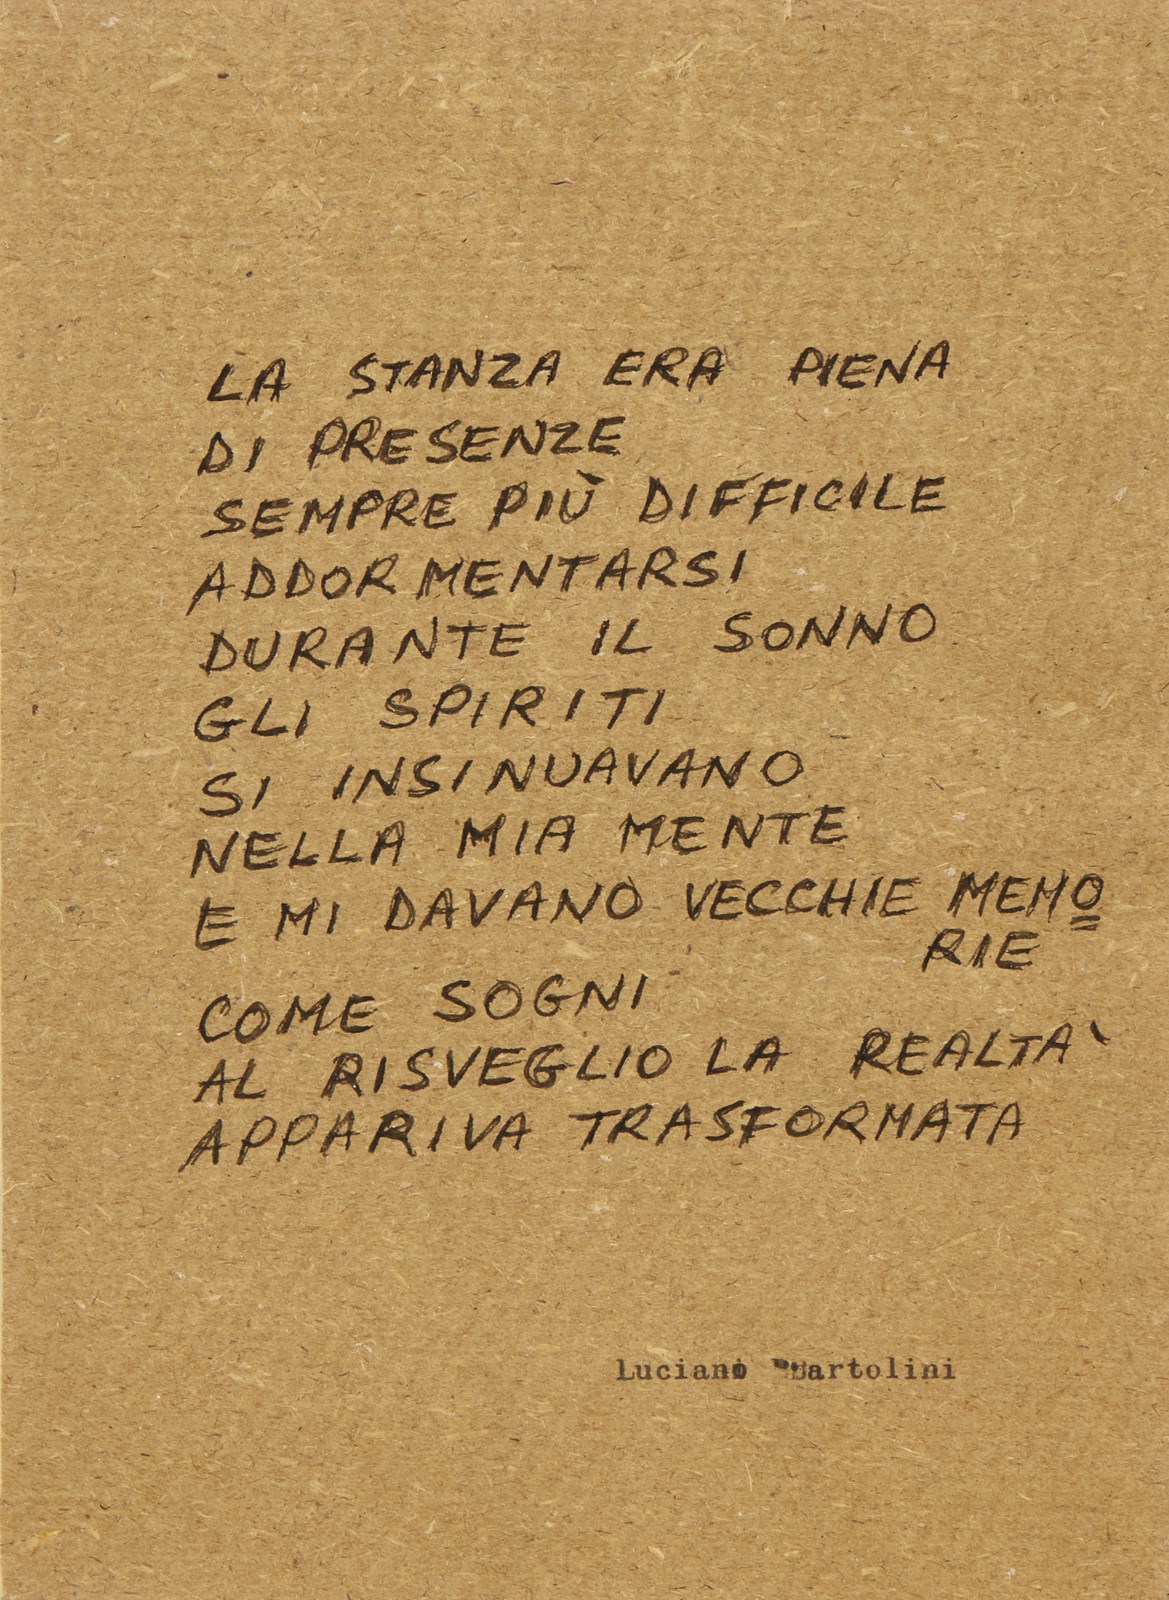 LA STANZA ERA PIENA
DI PRESENZE
SEMPRE PIÙ DIFFICILE
ADDORMENTARSI
DURANTE IL SONNO
GLI SPIRITI
SI INSINUAVANO
NELLA MIA MENTE
E MI DAVANO VECCHIE MEMO
RIE
COME SOGNI
AL RISVEGLIO LA REALTA`
APPARIVA TRASFORMATA
Luciano Bartolini